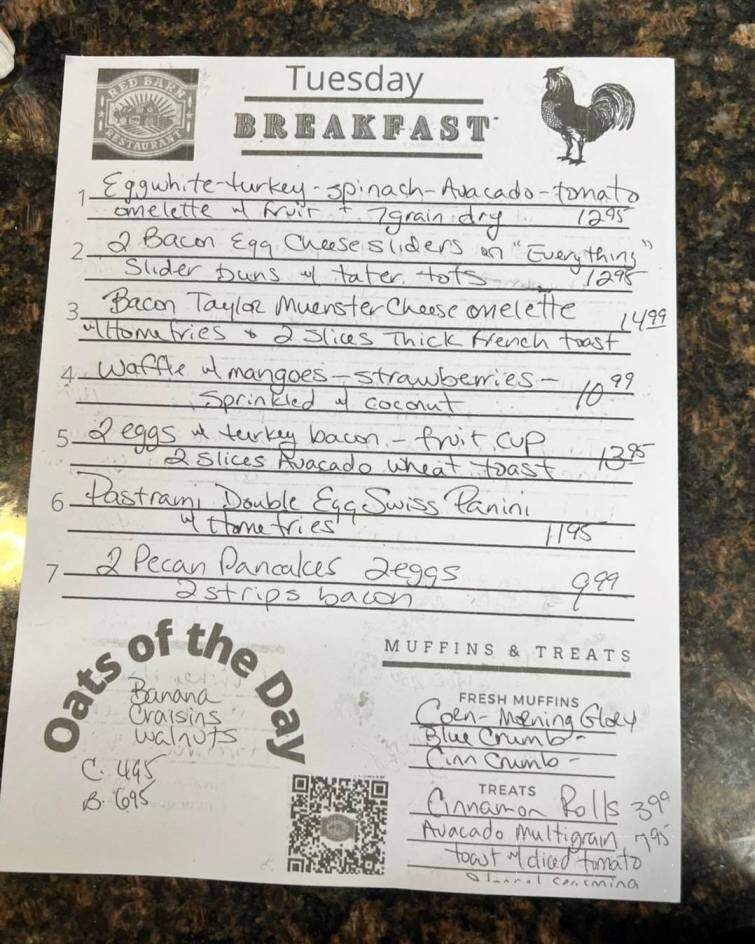 RED BARN
RESTAURANT
Tuesday
BREAKFAST
1 Eggwhite-turkey-spinach-Avacado-tomato
omelette w/ fruit + 7grain dry 12.95
2 2 Bacon Egg Cheese sliders on "Everything"
Slider buns w/ tater tots 12.95
3 Bacon Taylor Muenster Cheese omelette 14.99
w/ Homefries + 2 Slices Thick French toast
4 Waffle w/ mangoes - strawberries - 10.99
Sprinkled w/ coconut
5 2 eggs w/ turkey bacon - fruit cup
2 Slices Avacado wheat toast 13.95
6 Pastrami Double Egg Swiss Panini
w/ Homefries 11.95
7 2 Pecan Pancakes 2eggs
2 strips bacon 9.99
Oats of the Day
Banana
Craisins
walnuts
C. 4.95
B. 6.95
MUFFINS & TREATS
FRESH MUFFINS
Corn - Morning Glory
Blue Crumb -
Cinn Crumb -
TREATS
Cinnamon Rolls 3.99
Avacado Multigrain 7.95
toast w/ diced tomato